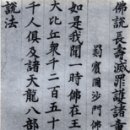 佛說長壽滅罪護諸童
罽賓國沙門佛
如是我聞一時佛在王
大比丘衆千二百五十
千人俱及諸天龍八部
說法